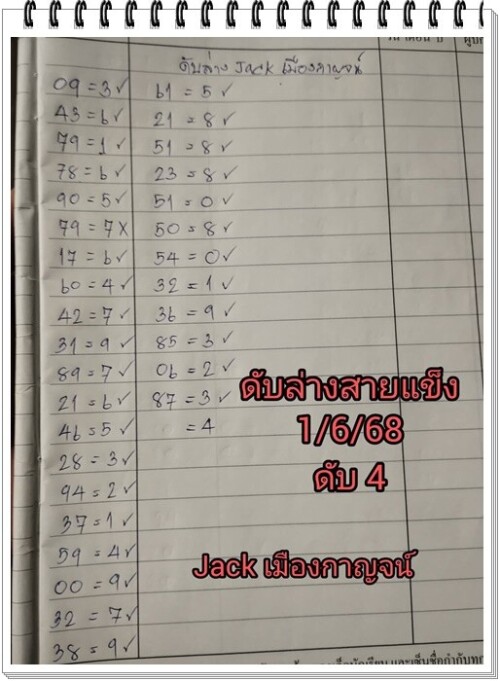 ดับล่าง Jack เมืองกาญจน์
09 = 3 ✓
43 = 6 ✓
79 = 1 ✓
78 = 6 ✓
90 = 5 ✓
79 = 7 X
17 = 6 ✓
60 = 4 ✓
42 = 7 ✓
31 = 9 ✓
89 = 7 ✓
21 = 6 ✓
46 = 5 ✓
28 = 3 ✓
94 = 2 ✓
37 = 1 ✓
59 = 4 ✓
00 = 9 ✓
32 = 7 ✓
38 = 9 ✓
61 = 5 ✓
21 = 8 ✓
51 = 8 ✓
23 = 8 ✓
51 = 0 ✓
50 = 8 ✓
54 = 0 ✓
32 = 1 ✓
36 = 9 ✓
85 = 3 ✓
06 = 2 ✓
87 = 3 ✓
= 4
ดับล่างสายแข็ง
1/6/68
ดับ 4
Jack เมืองกาญจน์